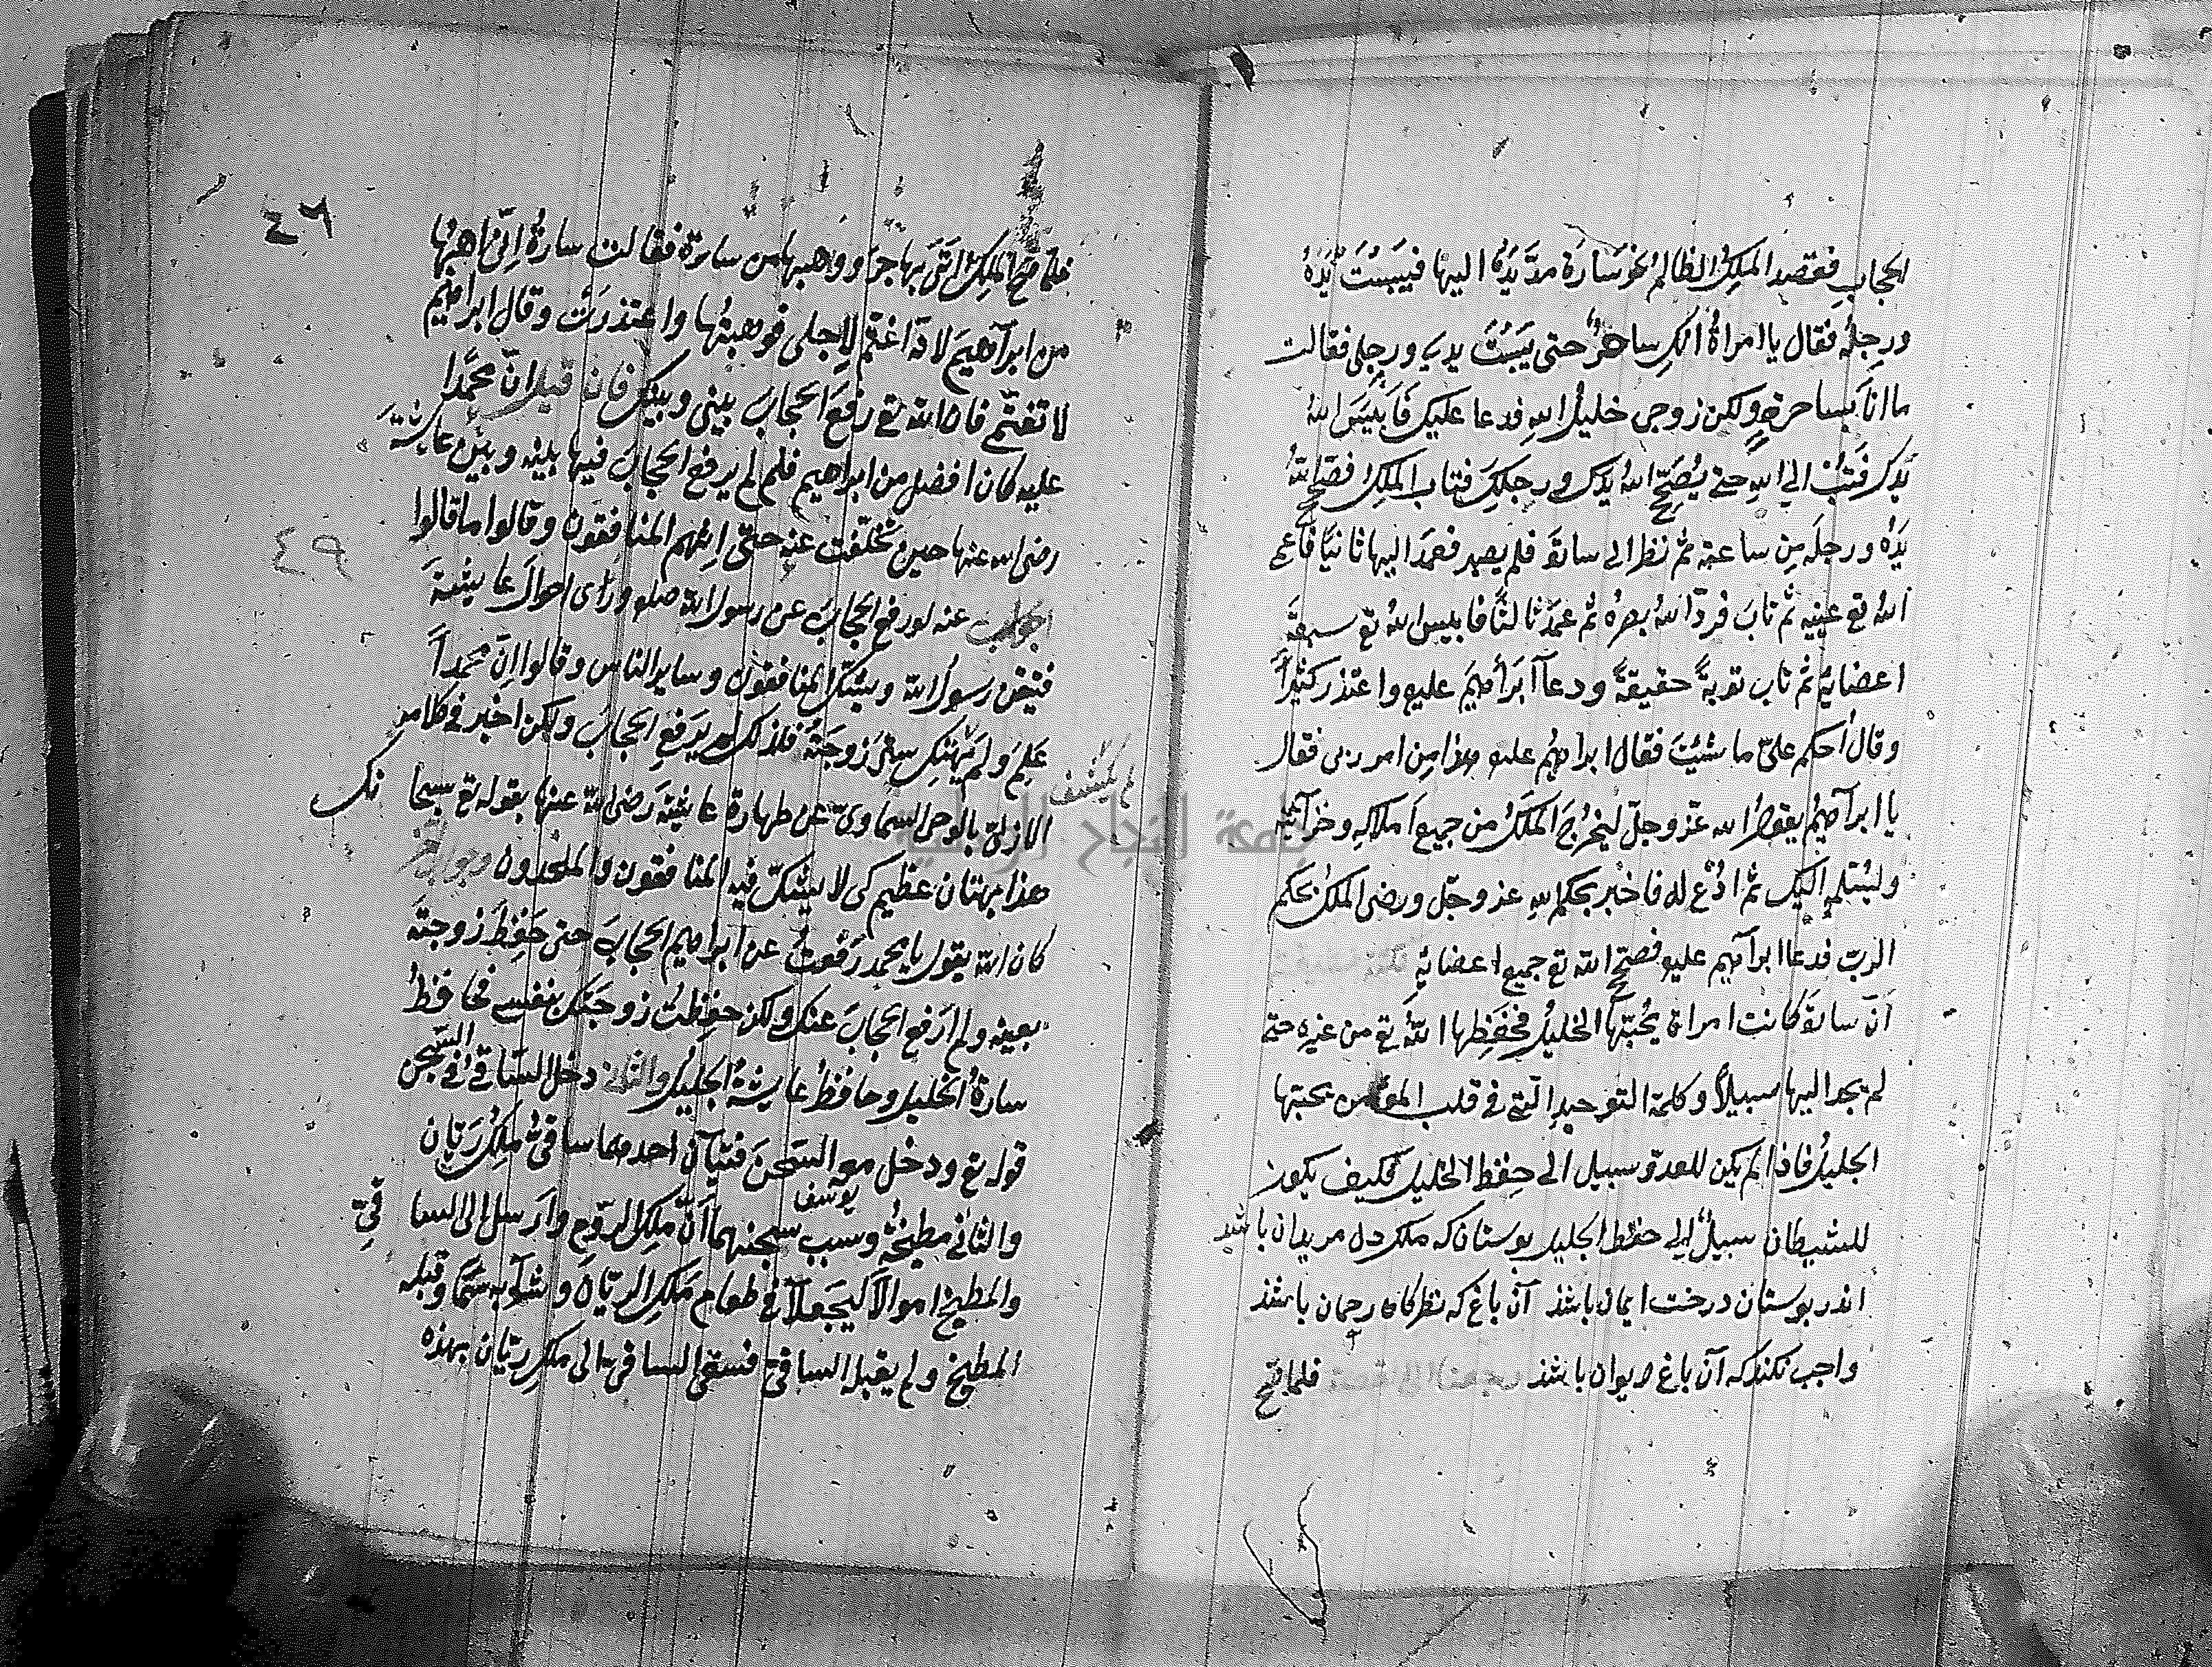 الحجاب فقصد الملك الظالم نحو سارة مدّ يده اليها فيبست يده
ورجله فقال يا امراة انك ساحرة حتى يبست يدى ورجلى فقالت
ما انا بساحرة ولكن زوجى خليل الله فدعا عليك فأيبس الله
يدك فتب الى الله حتى يصحّ الله يدك ورجلك فتاب الملك فصحّ الله
يده ورجله من ساعته ثم نظر الى سارة فلم يصبر فعمد اليها ثانيًا فاعمى
الله تع عينيه ثم تاب فردّ الله بصره ثم عمد ثالثًا فايبس الله تع سبعة
اعضائه ثم تاب توبةً حقيقةً ودعا ابراهيم عليه واعتذر كثيرًا
وقال احكم علىّ ما شئت فقال ابراهيم عليه هذا من امر ربى فقال
يا ابراهيم يقول الله عزّ وجلّ ليخرج الملك من جميع املاكه وخزائنه
وليسلمه اليك ثم ادع له فاخبر بحكم الله عز وجلّ ورضى الملك بحكم
الربّ فدعا ابراهيم عليه فصحّ الله تع جميع اعضائه
انّ سارة كانت امراة يحبّها الخليل فحفظها الله تع من غيره حتى
لم يجد اليها سبيلاً وكلمة التوحيد التى فى قلب المؤمن يحبّها
الجليل فاذا لم يكن للعدوّ سبيل الى حفظ الخليل فكيف يكون
للشيطان سبيل الى حفظ الجليل بوستان كه ملك دل مريدان باشد
اندر بوستان درخت ايمان باشد آن باغ كه نظركاه رحمان باشد
واجب نكند كه آن باغ ديوان باشد فلما فتح
٤٦
فلمّا فتح الملك اتى بهاجر ووهبها من سارة فقالت سارة انّى اهبها
من ابراهيم لانّه اغتم لاجلى فوهبتها واعتذرت وقال ابراهيم
لا تغتمّى فان الله تع رفع الحجاب بينى وبينك فان قيل انّ محمّدا
عليه كان افضل من ابراهيم فلم لم يرفع الحجاب فيها بينه وبين عايشة
رضى الله عنها حين تخلّفت عنه حتى اتهم المنافقون وقالوا ما قالوا
٤٩
الجواب عنه لو رفع الحجاب عن رسول الله صلعم ورأى احوال عايشة
رسول الله ويشكّ المنافقون وساير الناس وقالوا انّ محمدًا
علم ولم يهتك ستر زوجته فلذلك لم يرفع الحجاب ولكن اخبر فى كلامه
لم يكشف
الازلىّ بالوحى السماوىّ عن طهارة عايشة رضى الله عنها بقوله تع سبحانك
هذا بهتان عظيم كى لا يشكّ فيه المنافقون والملحدون وجواب آخر
كان الله يقول يا محمد رفعت عن ابراهيم الحجاب حتى حفظ زوجته
بعينه ولم ارفع الحجاب عنك ولكن حفظت زوجتك بنفسى فحافظ
سارة الخليل وحافظ عايشة الجليل والثانى دخل الساقى فى السّجن
قوله تع ودخل معه السّجن فتيان احدهما ساقى ملك ريّان
يوسف
والثانى مطبخه وسبب سجنهما انّ ملك الروم وارسل الى الساقىّ
والمطبخ اموالا ليجعلا فى طعام ملك الريّان وشرابه سمًّا وقبله
المطبخ ولم يقبله الساقى فسقى الساقى الى ملك ريّان بهذه
جامعة النجاح الوطنية